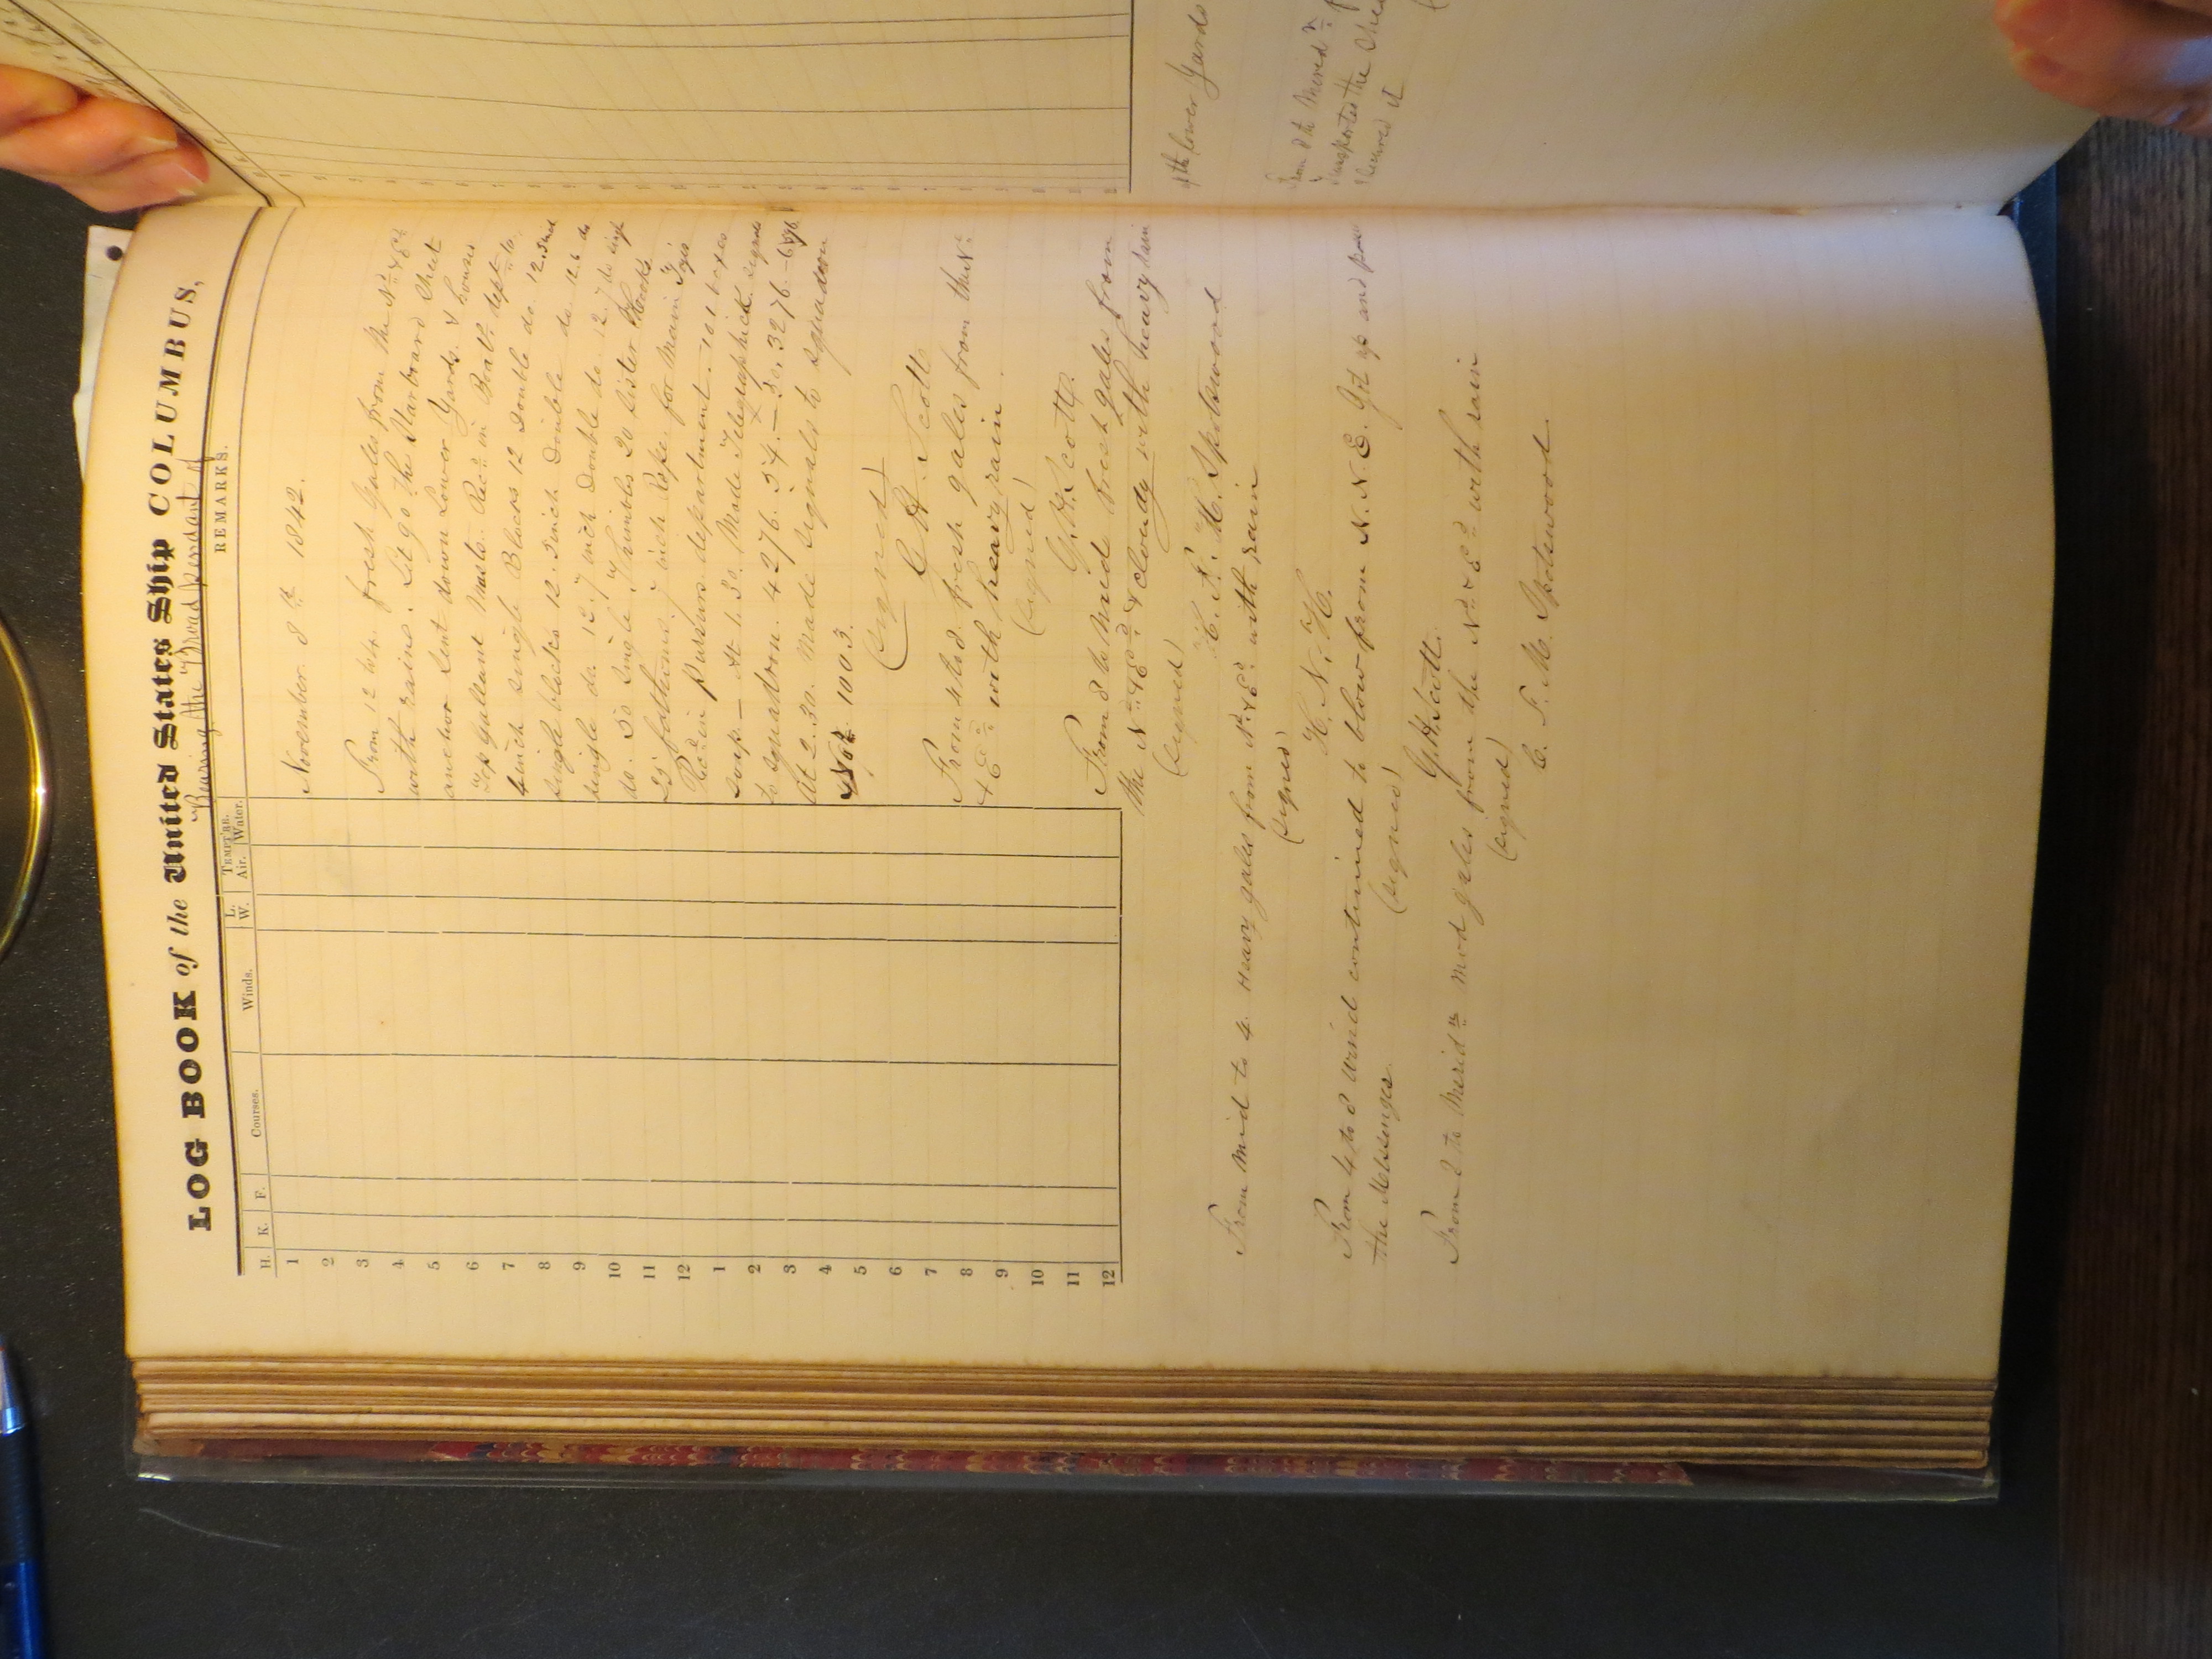 LOG BOOK of the United States Ship COLUMBUS,
Bearing the Broad pendant of
H. K. F. Courses. Winds. L. W. TEMPT'RE. Air. Water. REMARKS.
1
2
3
4
5
6
7
8
9
10
11
12
1
2
3
4
5
6
7
8
9
10
11
12
November 8th 1842.
From 12 to 4. fresh Gales from the Nd & Ed
with rains. Let go the Starboard Sheet
anchor sent down Lower Yards. & housed
Top Gallant Masts. Recd in Boats. dept
4 inch single Blocks 12 Double do. 12. 5 inch
single blocks 12. 5 inch Double do. 12. 6 do
single do. 12. 7 inch Double do. 12. 7 do single
do. 50 single Thimbles 20 sister Hooks
25 fathoms. 7 inch Rope. for Main
Recd in pursers. department. 101 boxes
soap — At 1.30. Made Telegraphick signals
to squadron. 4276. 54. — 30. 3276
At 2.30. Made signals to squadron
No. 1003.
(signed)
G. H. Scott
From 4 to 8. fresh gales from the Nd
& Ed with heavy rain.
(signed)
G. H. Scott.
From 8 to Mid fresh gales from
the Nd & Ed & cloudy with heavy rain
(signed)
C. F. M. Spotswood
From Mid to 4. Heavy gales from Nd & Ed with rain
(signed)
H. N. H.
From 4 to 8 Wind continued to blow from N. N. E. Got up and
the Messenger.
(signed)
G. H. Scott.
From 8 to Meridn Mod gales from the Nd & Ed with rain
(signed)
C. F. M. Spotswood.
lower Yards
From 8 to Merid
transported the
secured it